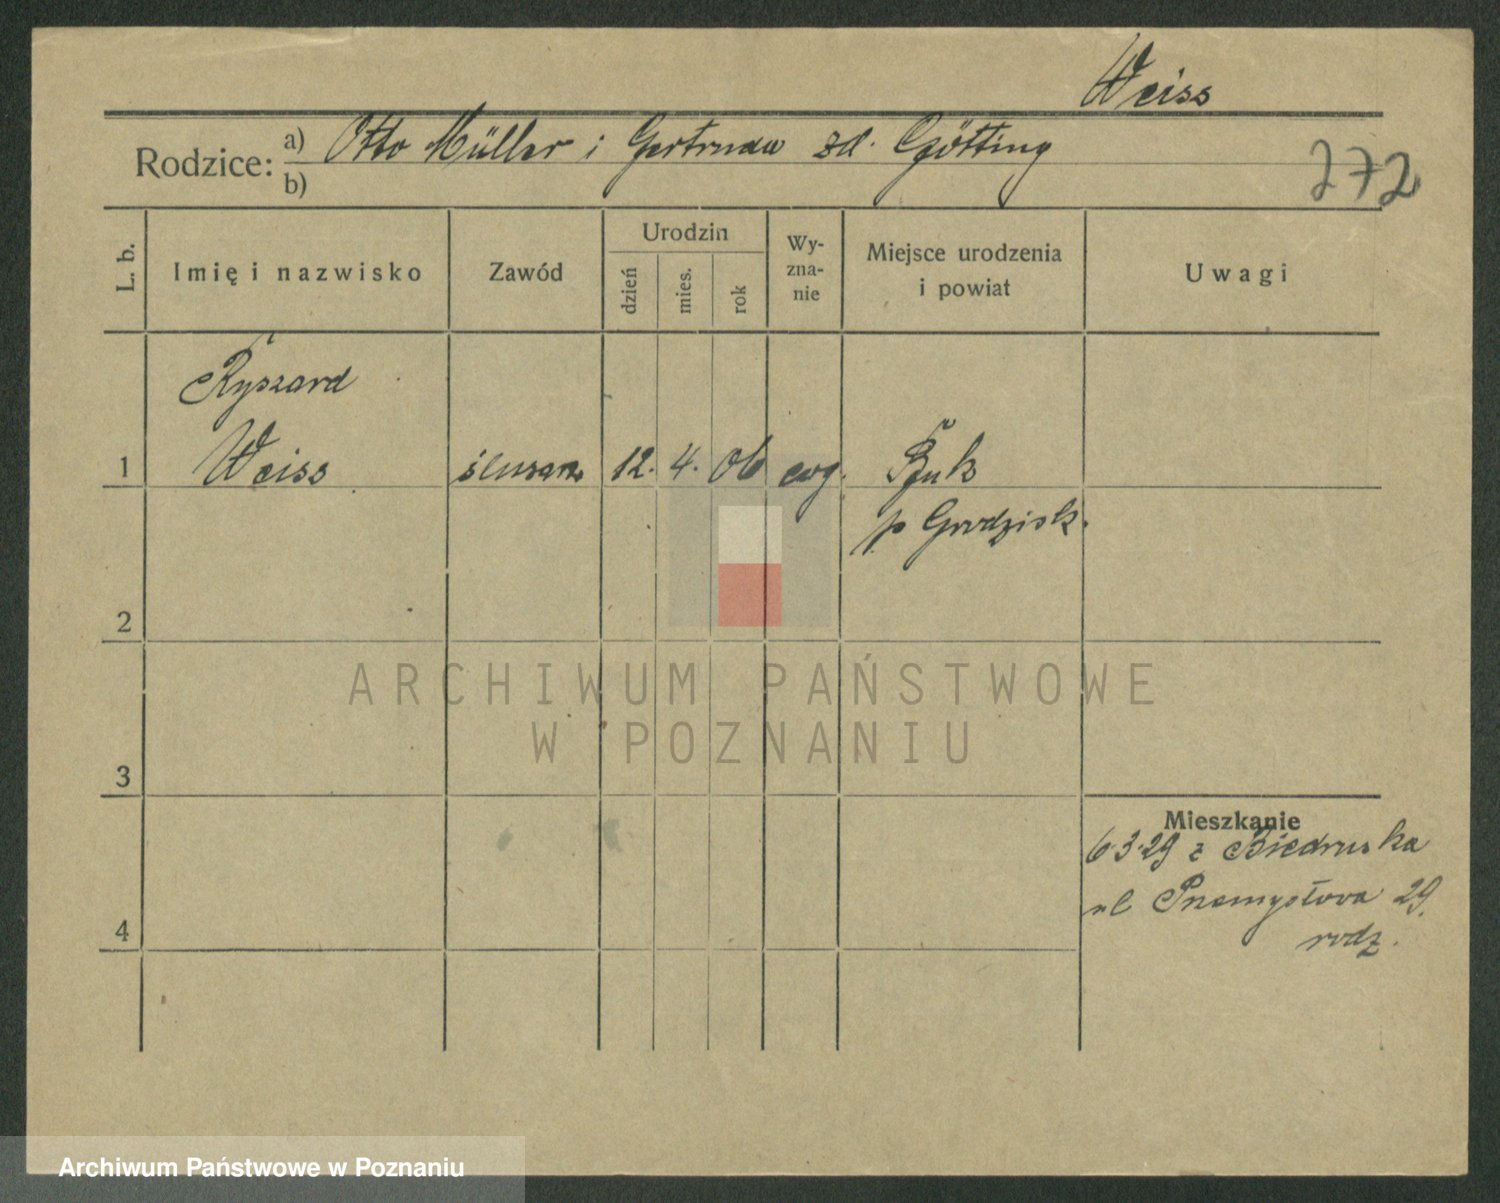 Weiss
Rodzice: a) Otto Müller i Gertruda zd. Götting
b)
272
L. b.
Imię i nazwisko
Zawód
Urodzin
dzień
mies.
rok
Wy-
zna-
nie
Miejsce urodzenia
i powiat
Uwagi
Ryszard
1 Weiss ślusarz 12. 4. 06 ewg. Buk
p Grodzisk.
2
3
4
ARCHIWUM PAŃSTWOWE
W POZNANIU
Mieszkanie
6.3.29 z Biedruska
ul Przemysłowa 29.
rodz.
Archiwum Państwowe w Poznaniu